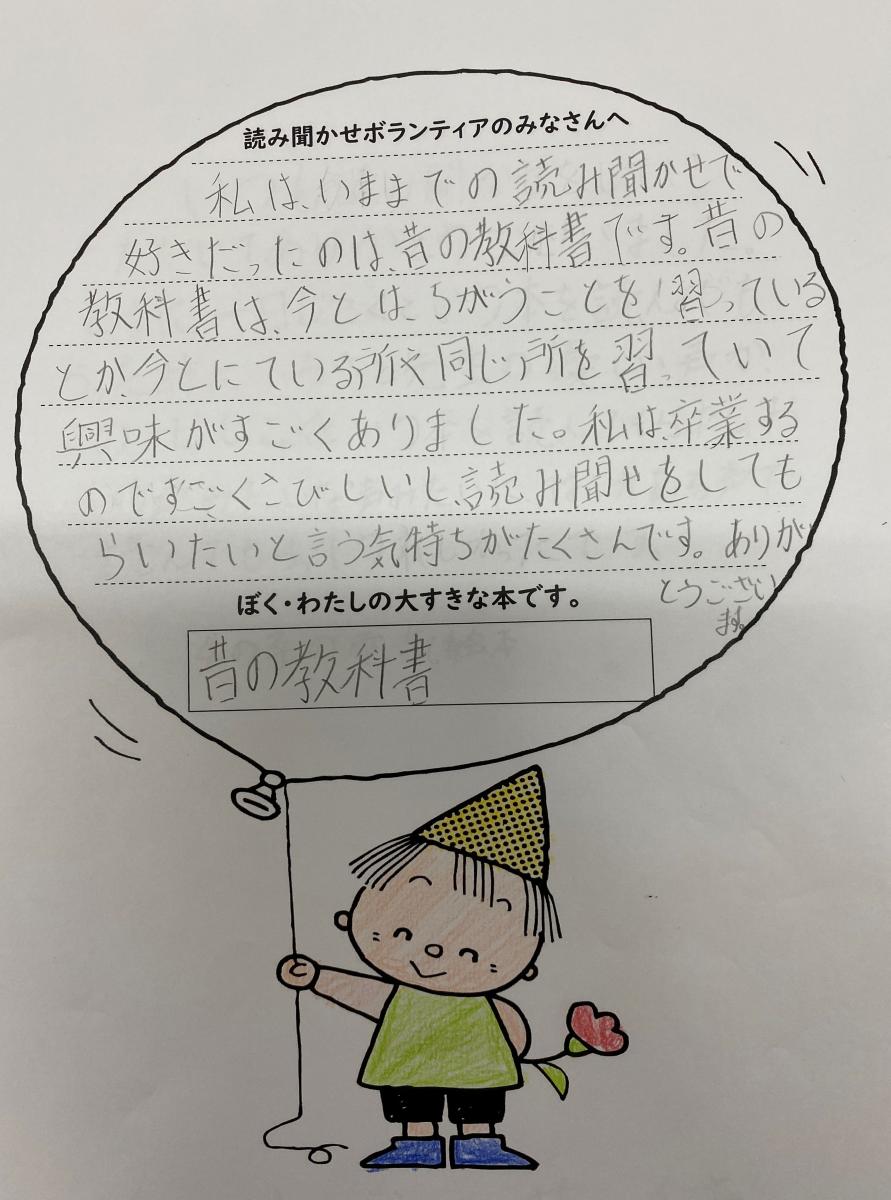 読み聞かせボランティアのみなさんへ
私は、いままでの読み聞かせで
好きだったのは、昔の教科書です。昔の
教科書は、今とは、ちがうことを習っている
とか、今とにている所や同じ所を習っていて
興味がすごくありました。私は、卒業する
のですごくこびしいし、読み聞せをしても
らいたいと言う気持ちがたくさんです。ありが
とうござい
ます。
ぼく・わたしの大すきな本です。
昔の教科書